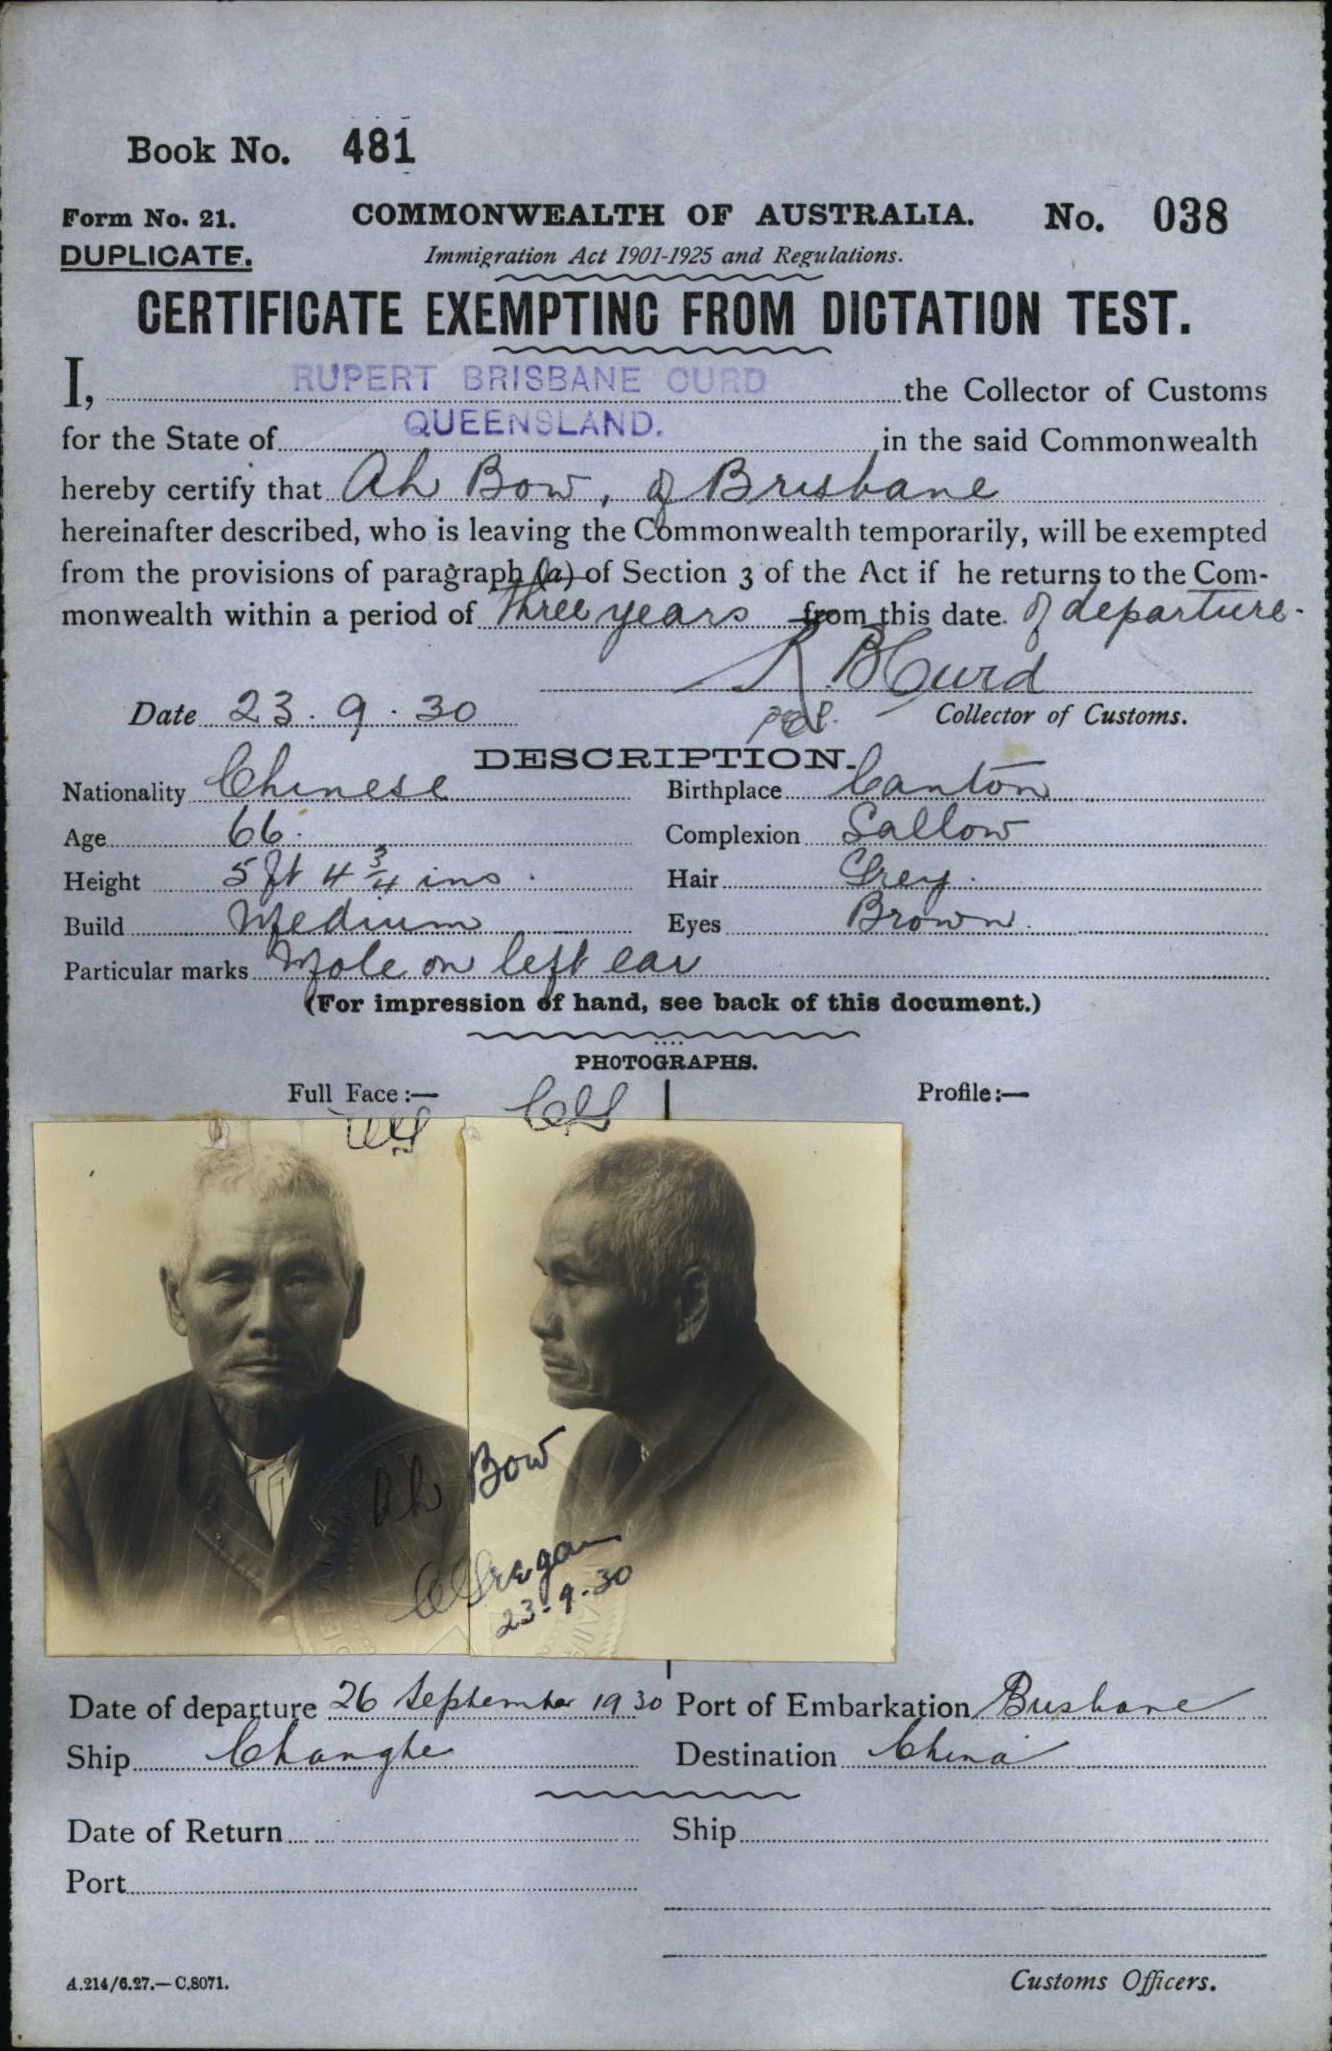 Book No. 481
Form No. 21. COMMONWEALTH OF AUSTRALIA. No. 038
DUPLICATE. Immigration Act 1901-1925 and Regulations.
CERTIFICATE EXEMPTING FROM DICTATION TEST.
I, RUPERT BRISBANE CURD the Collector of Customs
for the State of QUEENSLAND. in the said Commonwealth
hereby certify that Ah Bow, of Brisbane
hereinafter described, who is leaving the Commonwealth temporarily, will be exempted
from the provisions of paragraph (a) of Section 3 of the Act if he returns to the Com-
monwealth within a period of Three years from this date of departure.
R. B Curd
Date 23.9.30 Collector of Customs.
DESCRIPTION.
Nationality Chinese Birthplace Canton
Age 66. Complexion Sallow
Height 5 ft 4 3/4 ins. Hair Grey.
Build Medium Eyes Brown.
Particular marks Mole on left ear
(For impression of hand, see back of this document.)
PHOTOGRAPHS.
Full Face:— Profile:—
Ah Bow
23.9.30
Date of departure 26 September 1930 Port of Embarkation Brisbane
Ship Changte Destination China
Date of Return Ship
Port
A.214/6.27.—C.8071. Customs Officers.